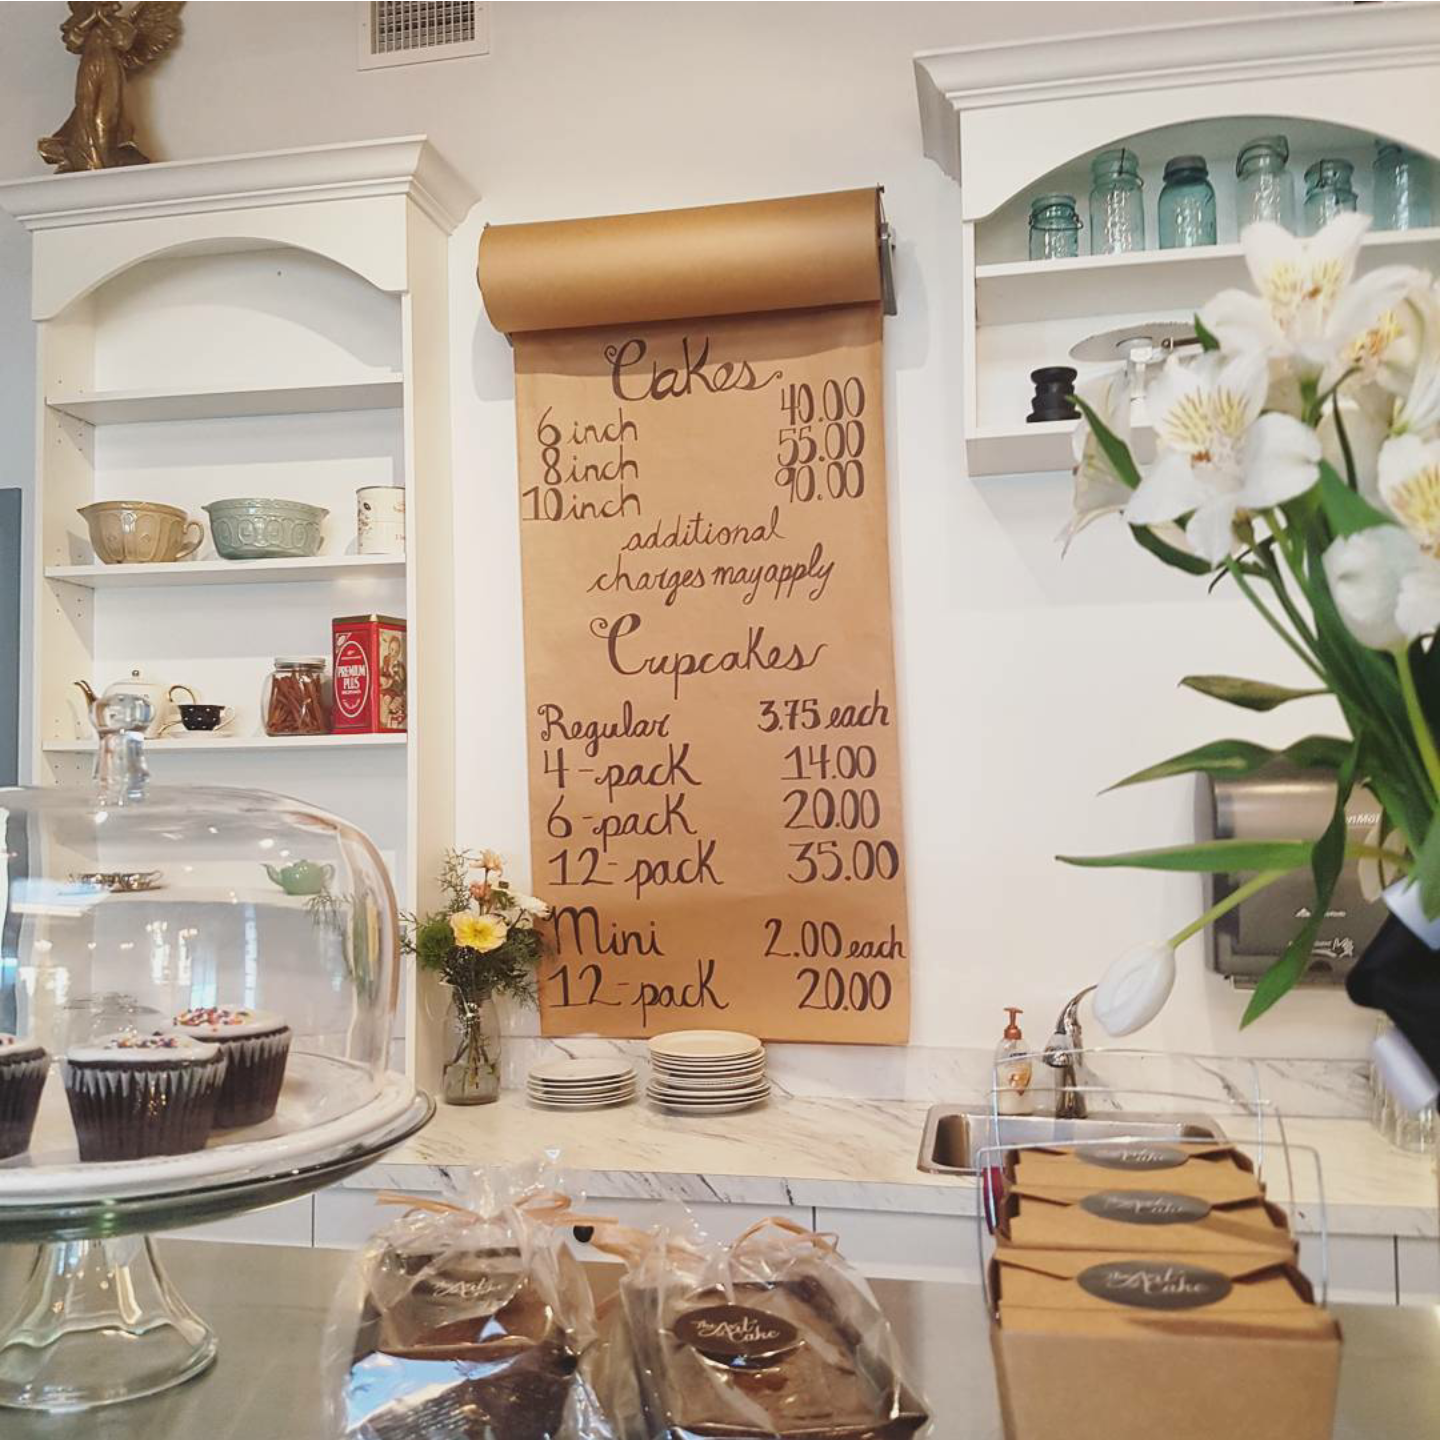 Cakes
6 inch 40.00
8 inch 55.00
10 inch 90.00
additional
charges may apply
Cupcakes
Regular 3.75 each
4-pack 14.00
6-pack 20.00
12-pack 35.00
Mini 2.00 each
12-pack 20.00
PREMIUM
PLUS
The Art
of Cake
The Art
of Cake
The Art
of Cake